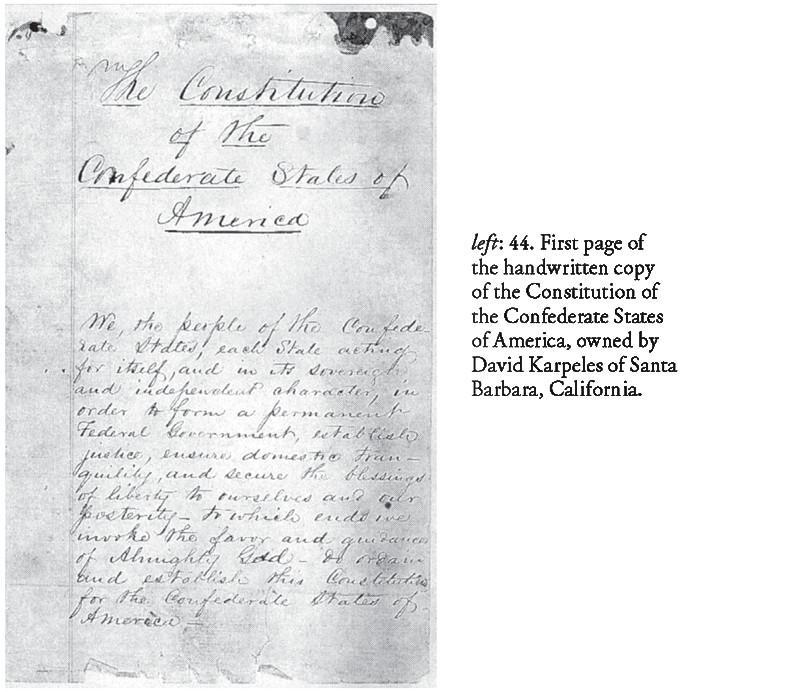 The Constitution
of the
Confederate States of
America
We, the people of the Confede-
rate States, each State acting
for itself, and in its sovereign
and independent character, in
order to form a permanent
Federal Government, establish
justice, ensure domestic tran-
quility, and secure the blessings
of liberty to ourselves and our
posterity – to which ends we
invoke the favor and guidance
of Almighty God – do ordain
and establish this Constitution
for the Confederate States of
America –
left: 44. First page of
the handwritten copy
of the Constitution of
the Confederate States
of America, owned by
David Karpeles of Santa
Barbara, California.